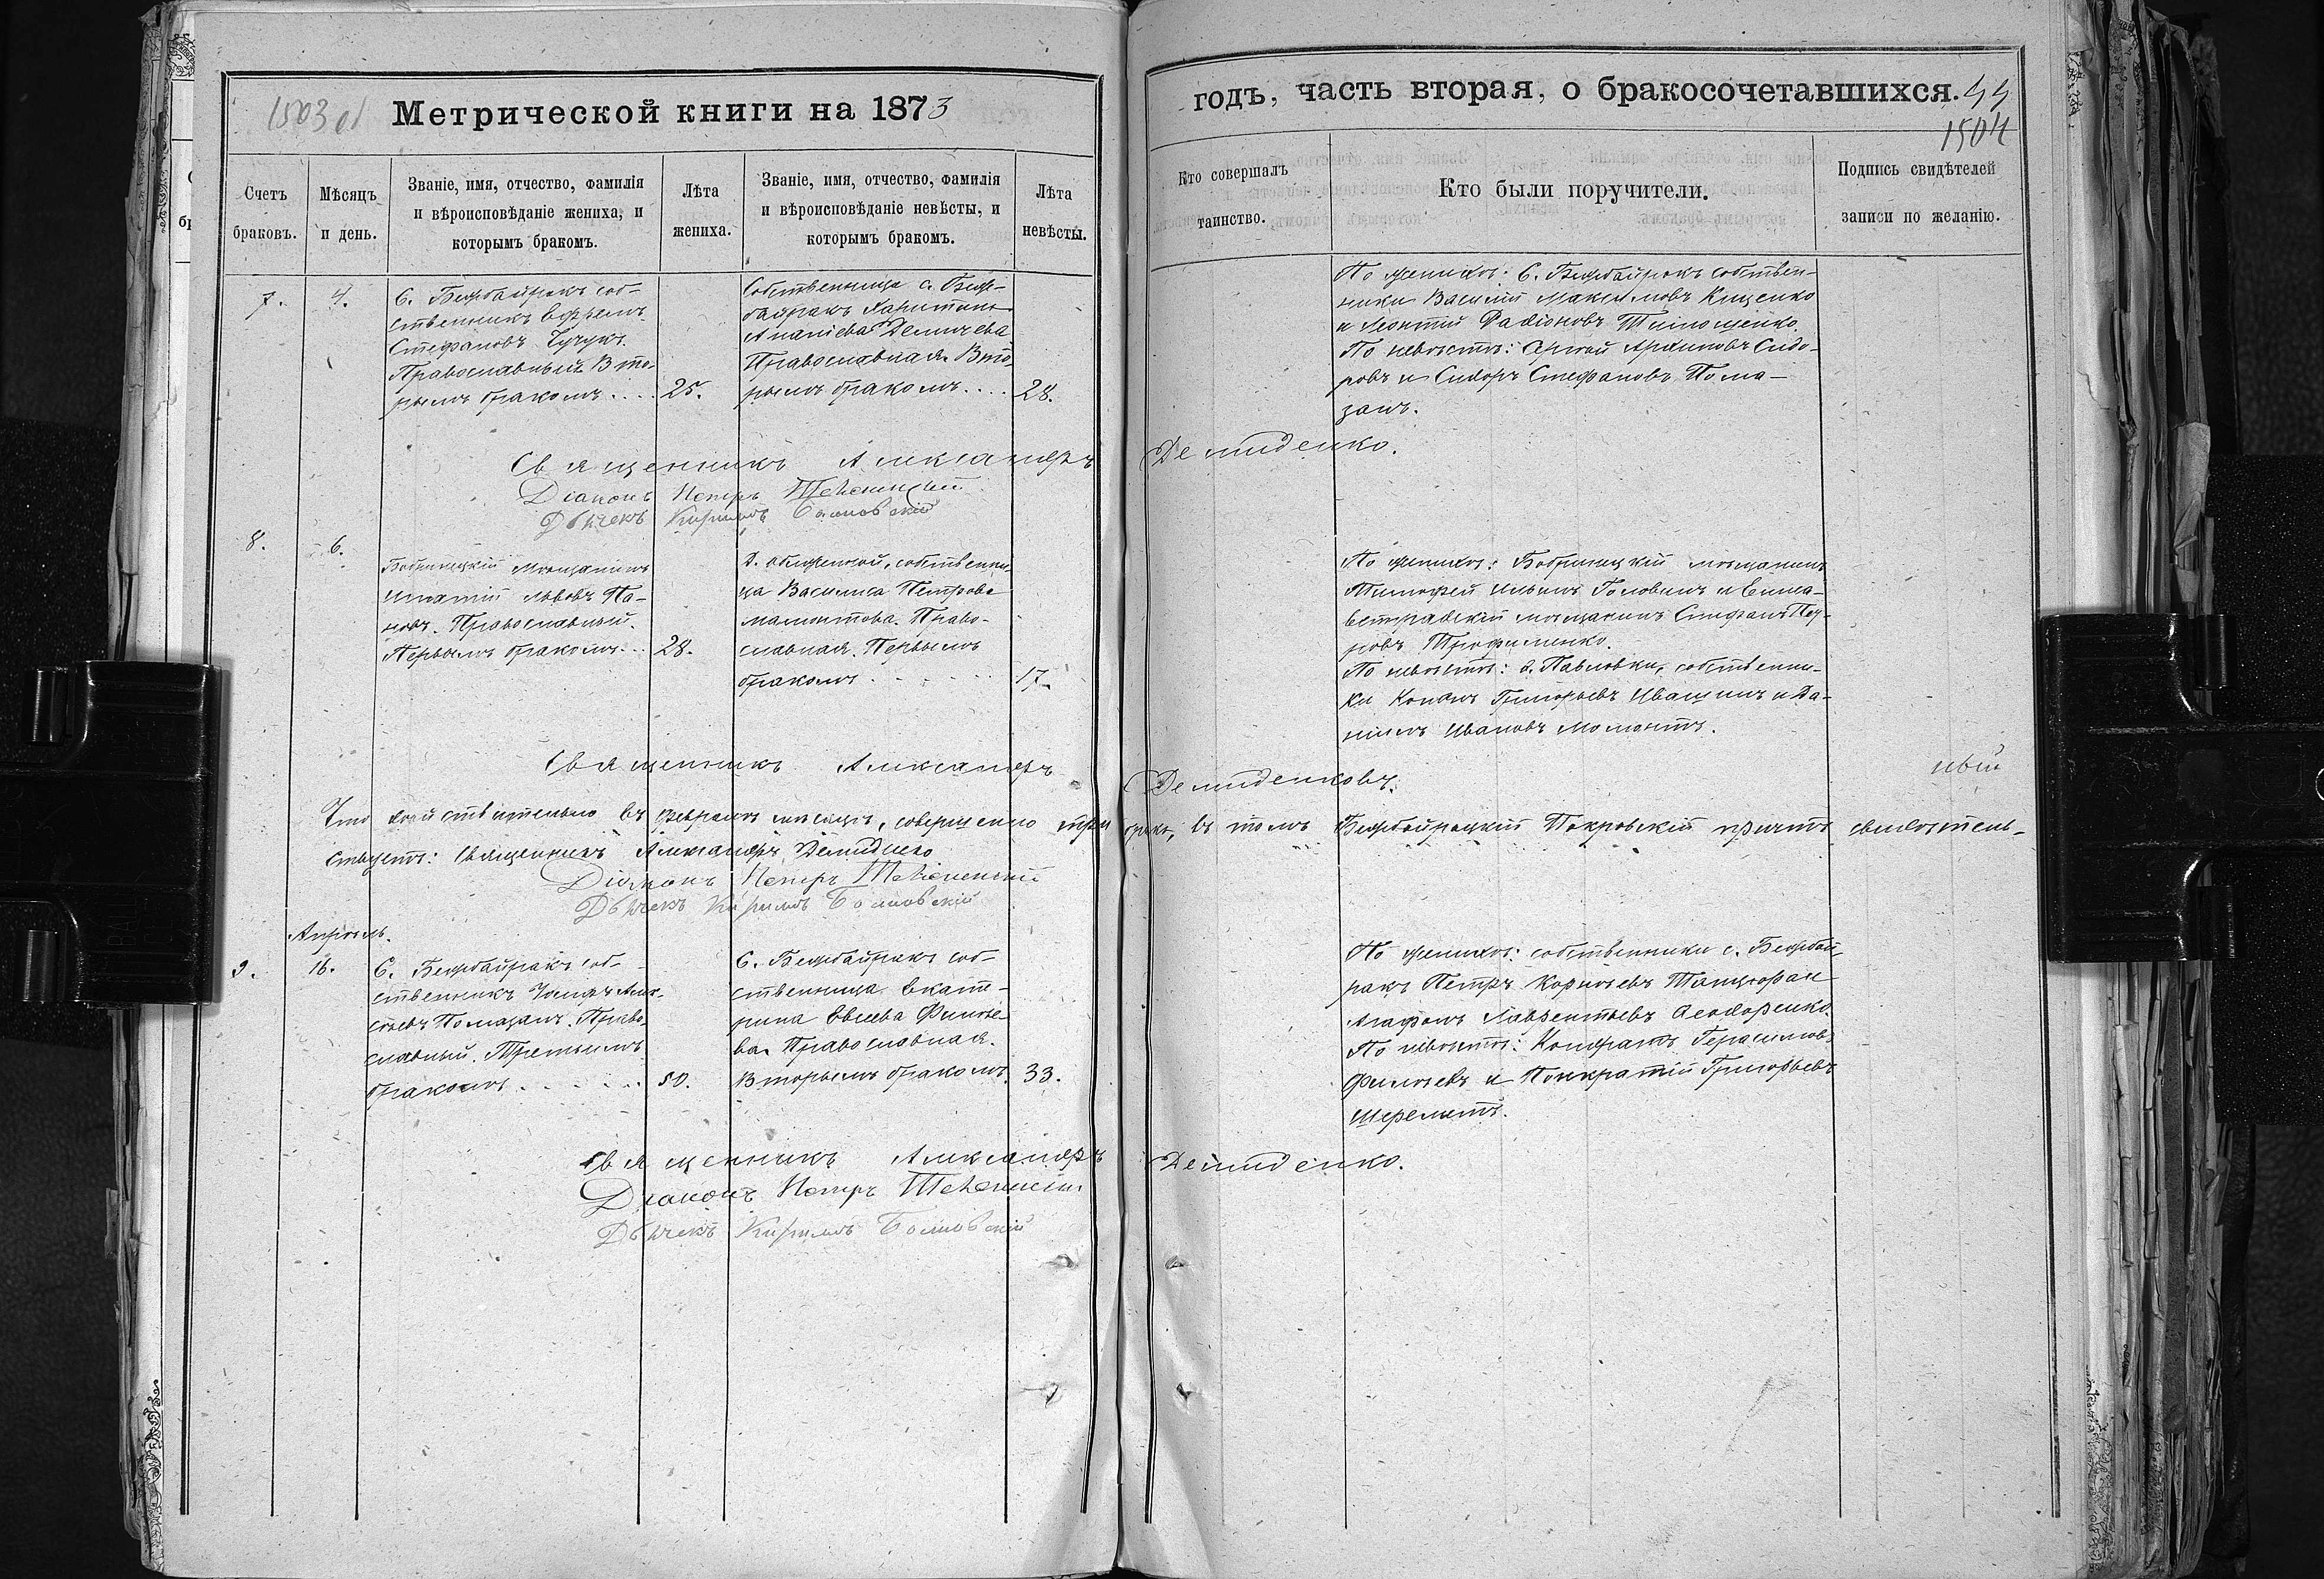 1503 об
Метрической книги на 1873
годъ, часть вторая, о бракосочетавшихся.
44
1504
Счетъ браковъ.
Мѣсяцъ и день.
Званіе, имя, отчество, фамилія
и вѣроисповѣданіе жениха, и
которымъ бракомъ.
Лѣта жениха.
Званіе, имя, отчество, фамилія
и вѣроисповѣданіе невѣсты, и
которымъ бракомъ.
Лѣта невѣсты.
Кто совершалъ
таинство.
Кто были поручители.
Подпись свидѣтелей
записи по желанію.
7.
4.
С. Бежбайракъ соб-
ственникъ Ефремъ
Стефановъ Чучукъ.
Православный. Вто-
рымъ бракомъ....
25.
Собственница с. Беж-
байракъ Харитина
Ананіева Демичева
Православная. Вто-
рымъ бракомъ...
28.
По женихѣ: С. Бежбайракъ собствен-
ники Василій Максимовъ Кищенко
и Леонтій Радіоновъ Тимошенко.
По невѣстѣ: Сергѣй Архиповъ Сидо-
ровъ и Сидоръ Стефановъ Пома-
занъ.
Священникъ Александръ Демиденко.
Діаконъ Петръ
Дьячекъ Кириллъ
8.
6.
Бобринецкій мѣщанинъ
Игнатій Львовъ Па-
новъ. Православный.
Первымъ бракомъ...
28.
Д. собственни-
ца Василиса Петрова
Мамонтова. Право-
славная. Первымъ
бракомъ
17.
По женихѣ: Бобринецкій мѣщанинъ
Тимофей Ильинъ Головинъ и Елиса-
ветградскій мѣщанинъ Стефанъ Пет-
ровъ Трофименко.
По невѣстѣ: д. Павловки, собственни-
ки Кононъ Григорьевъ Ивашинъ и Да-
ніилъ Ивановъ Момонтъ.
Священникъ Александръ Демиденковъ.
Что дѣйствительно въ Февралѣ мѣсяцѣ, совершено три брака, въ томъ Бежбайрацкій Покровскій причтъ свидѣтель-
ствуетъ: Священникъ Александръ Демиденко
Діаконъ Петръ
Дьячекъ Кириллъ
Апрѣль.
9.
16.
С. Бежбайракъ соб-
ственникъ Іосифъ Алек-
сѣевъ Помазанъ. Право-
славный. Третьимъ
бракомъ
50.
С. Бежбайракъ соб-
ственница Екате-
рина Евсеева Филоше-
ва. Православная.
Вторымъ бракомъ.
33.
По женихѣ: собственники с. Бежбай-
ракъ Петръ Корнѣевъ Танцюран
Агафонъ Лаврентьевъ Ѳеодоренко.
По невѣстѣ: Кондратъ Герасимовъ
и Понкратій Григорьевъ
Шереметъ.
Священникъ Александръ Демиденко.
Діаконъ Петръ
Дьячекъ Кириллъ